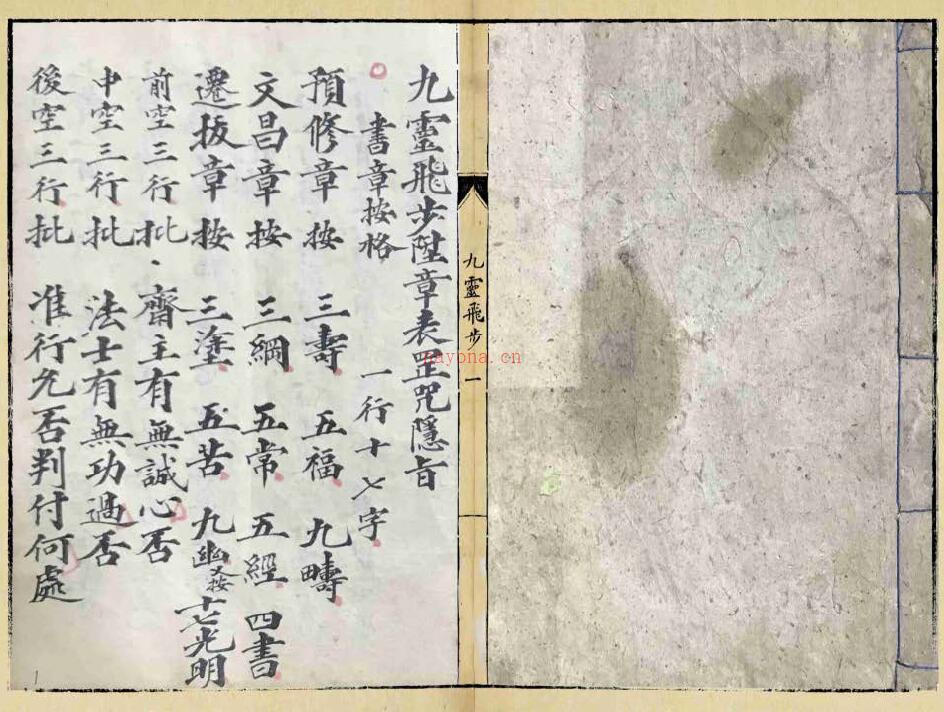 九靈飛步陞章表罡咒隱旨
書章按格 一行十七字
預修章按 三壽 五福 九疇
文昌章按 三綱 五常 五經 四書
遷拔章按 三塗 五苦 九幽 又按 十七光明
前空三行批 齋主有無誠心否
中空三行批 法士有無功過否
後空三行批 准行允否判付何處
九靈飛步 一
nayona.cn